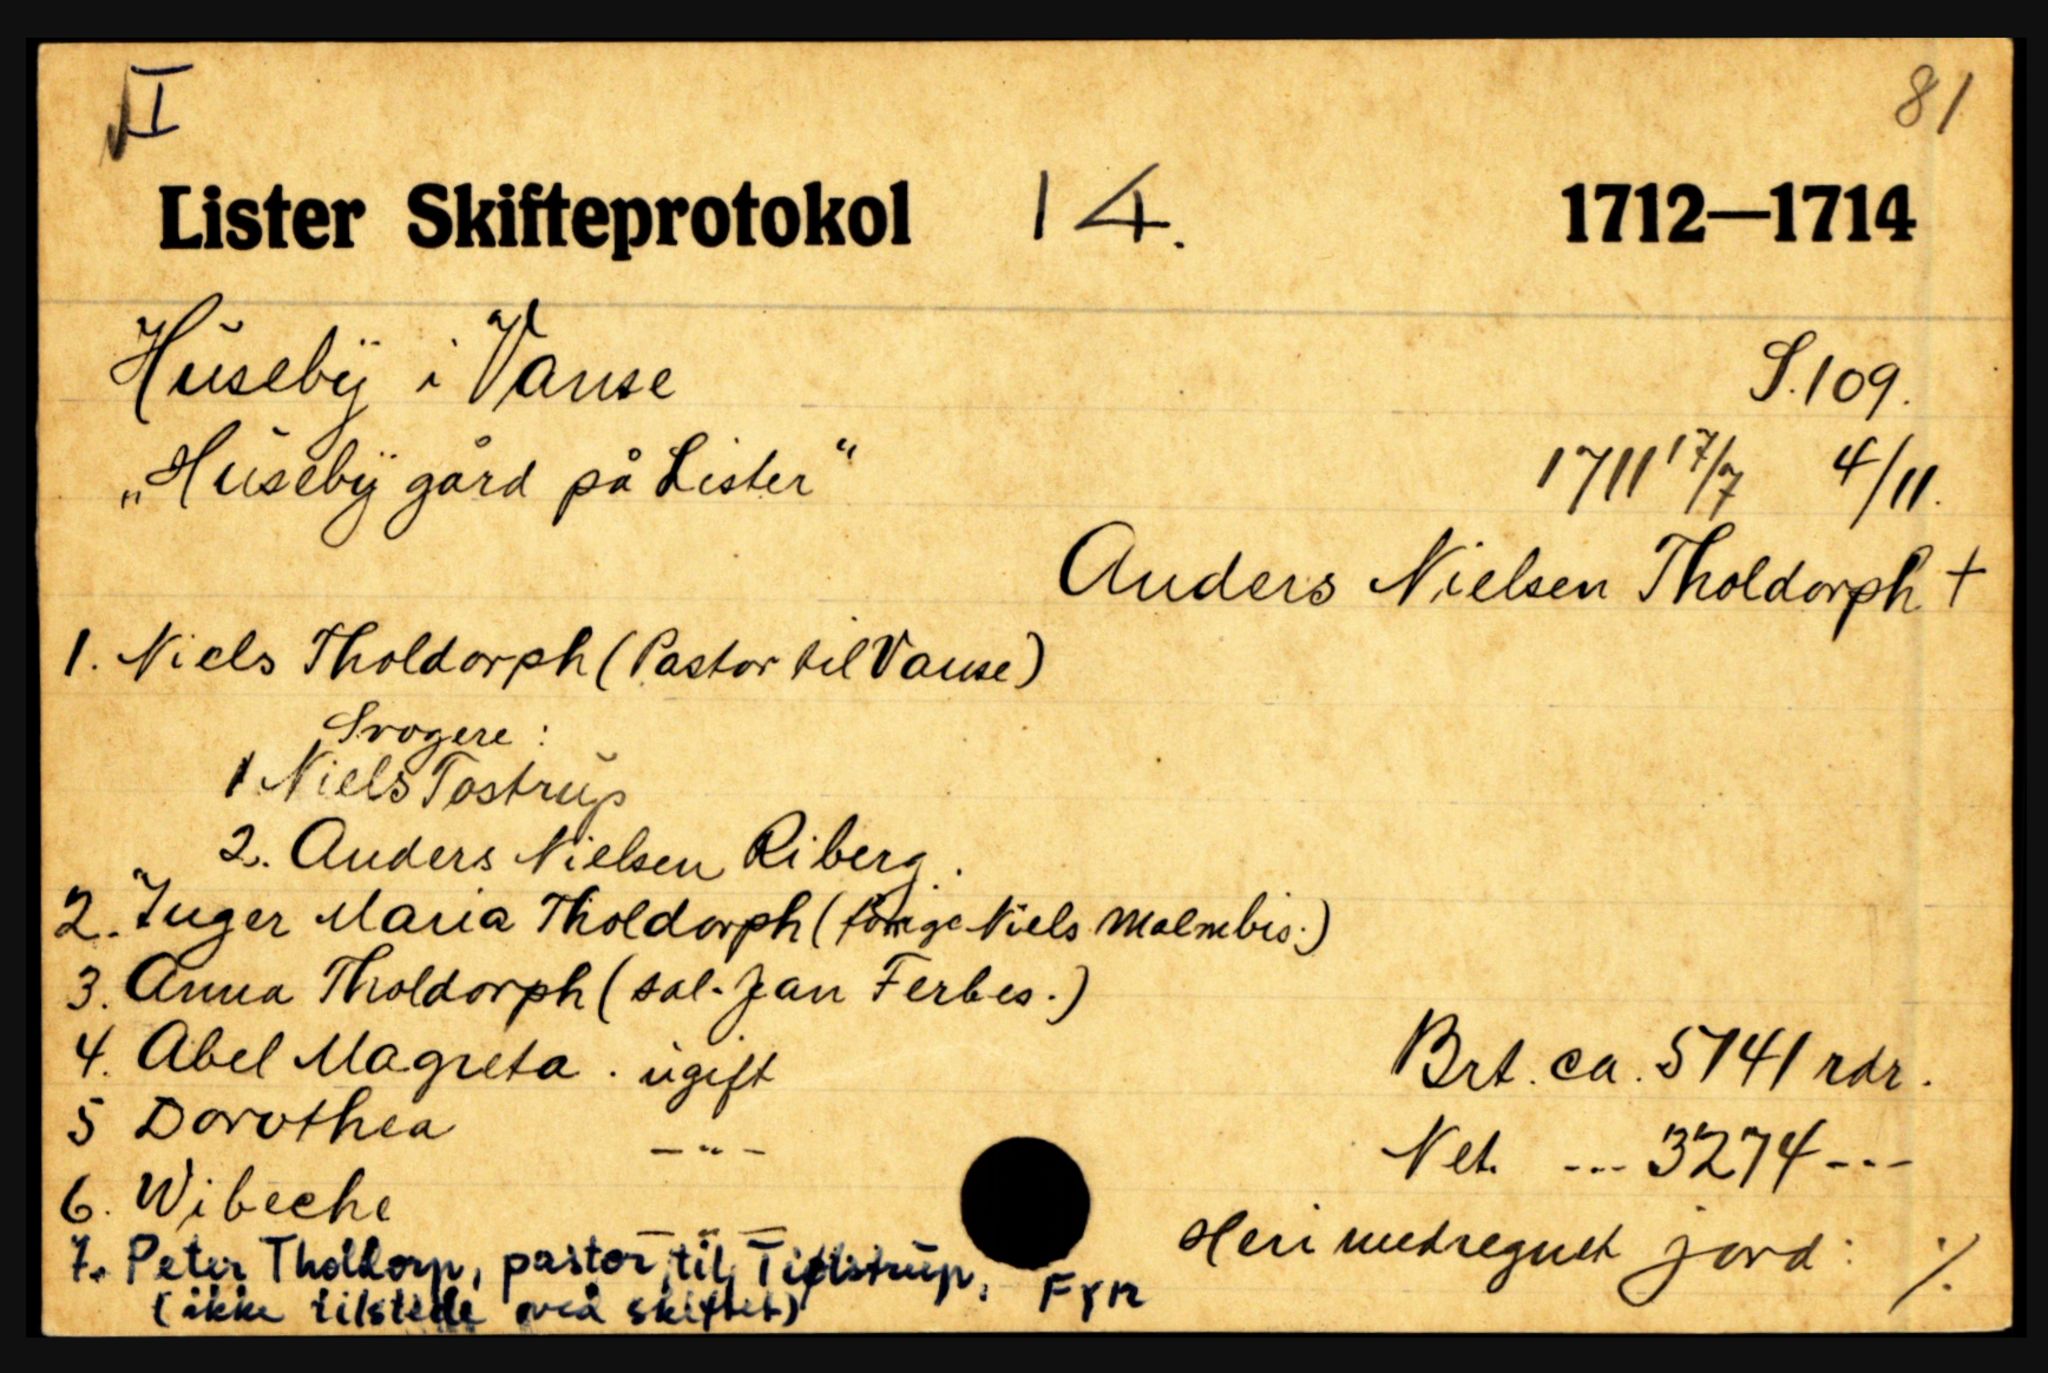 I 81
Lister Skifteprotokol 14. 1712—1714
Húsebÿ i Vanse S. 109.
„Húsebÿ gård på Lister“ 1711 17/7 4/11.
Anders Nielsen Tholdorph +
1. Niels Tholdorph (Pastor til Vanse)
Svogere:
1 Niels Tostrúp
2. Anders Nielsen Riberg.
2. Inger Maria Tholdorph ( Niels Malmbis.)
3. Anna Tholdorph (sal. Jan Ferbes.)
4. Abel Magreta. úgift Brt. ca. 5141 rdr.
5 Dorothea — " — Net. --- 3274 ---
6. Wibeche — " —
Heri medregnet jord: ./.
7. Peter Tholdorp, pastor til Tidlstrup, Fyn
(ikke tilstede ved skiftet)